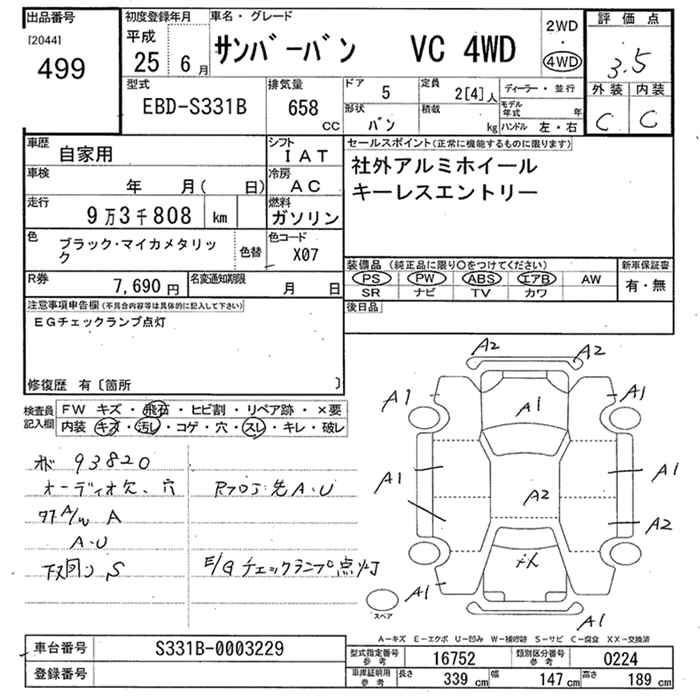 出品番号
[2044]
499
初度登録年月
平成
25 6月
車名・グレード
サンバーバン VC 4WD
2WD
・
4WD
評価点
3.5
外装 内装
C C
型式
EBD-S331B
排気量
658
CC
ドア
5
定員
2[4]人
形状
バン
積載
kg
ディーラー・並行
モデル年式 年
ハンドル 左・右
車歴
自家用
シフト
IAT
車検
年 月( 日)
冷房
AC
走行
9万3千808 km
燃料
ガソリン
色
ブラック・マイカメタリック
色替
色コード
X07
R券
7,690円
名変通知期限
月 日
セールスポイント(正常に機能するものに限ります)
社外アルミホイール
キーレスエントリー
装備品 (純正品に限り〇をつけてください)
PS PW ABS エアB AW
SR ナビ TV カワ
新車保証書
有・無
後日品
注意事項申告欄(不具合内容等は具体的に記入して下さい)
EGチェックランプ点灯
修復歴 有〔箇所 〕
検査員記入欄
FW キズ・飛石・ヒビ割・リペア跡・×要
内装 キズ・汚レ・コゲ・穴・スレ・キレ・破レ
93820
オーディオ欠、穴
A/W A
A・U
下回り S
先A・U
E/G チェックランプ点灯
A2 A2
A1 A1 A1
A1 A1
A2 A2
A1 A1
スペア
A-キズ E-エクボ U-凹み W-補修跡 S-サビ C-腐食 XX-交換済
車台番号
S331B-0003229
登録番号
型式指定番号
参考
16752
類別区分番号
参考
0224
車庫証明用
参考
長さ 339 cm
幅 147 cm
高さ 189 cm